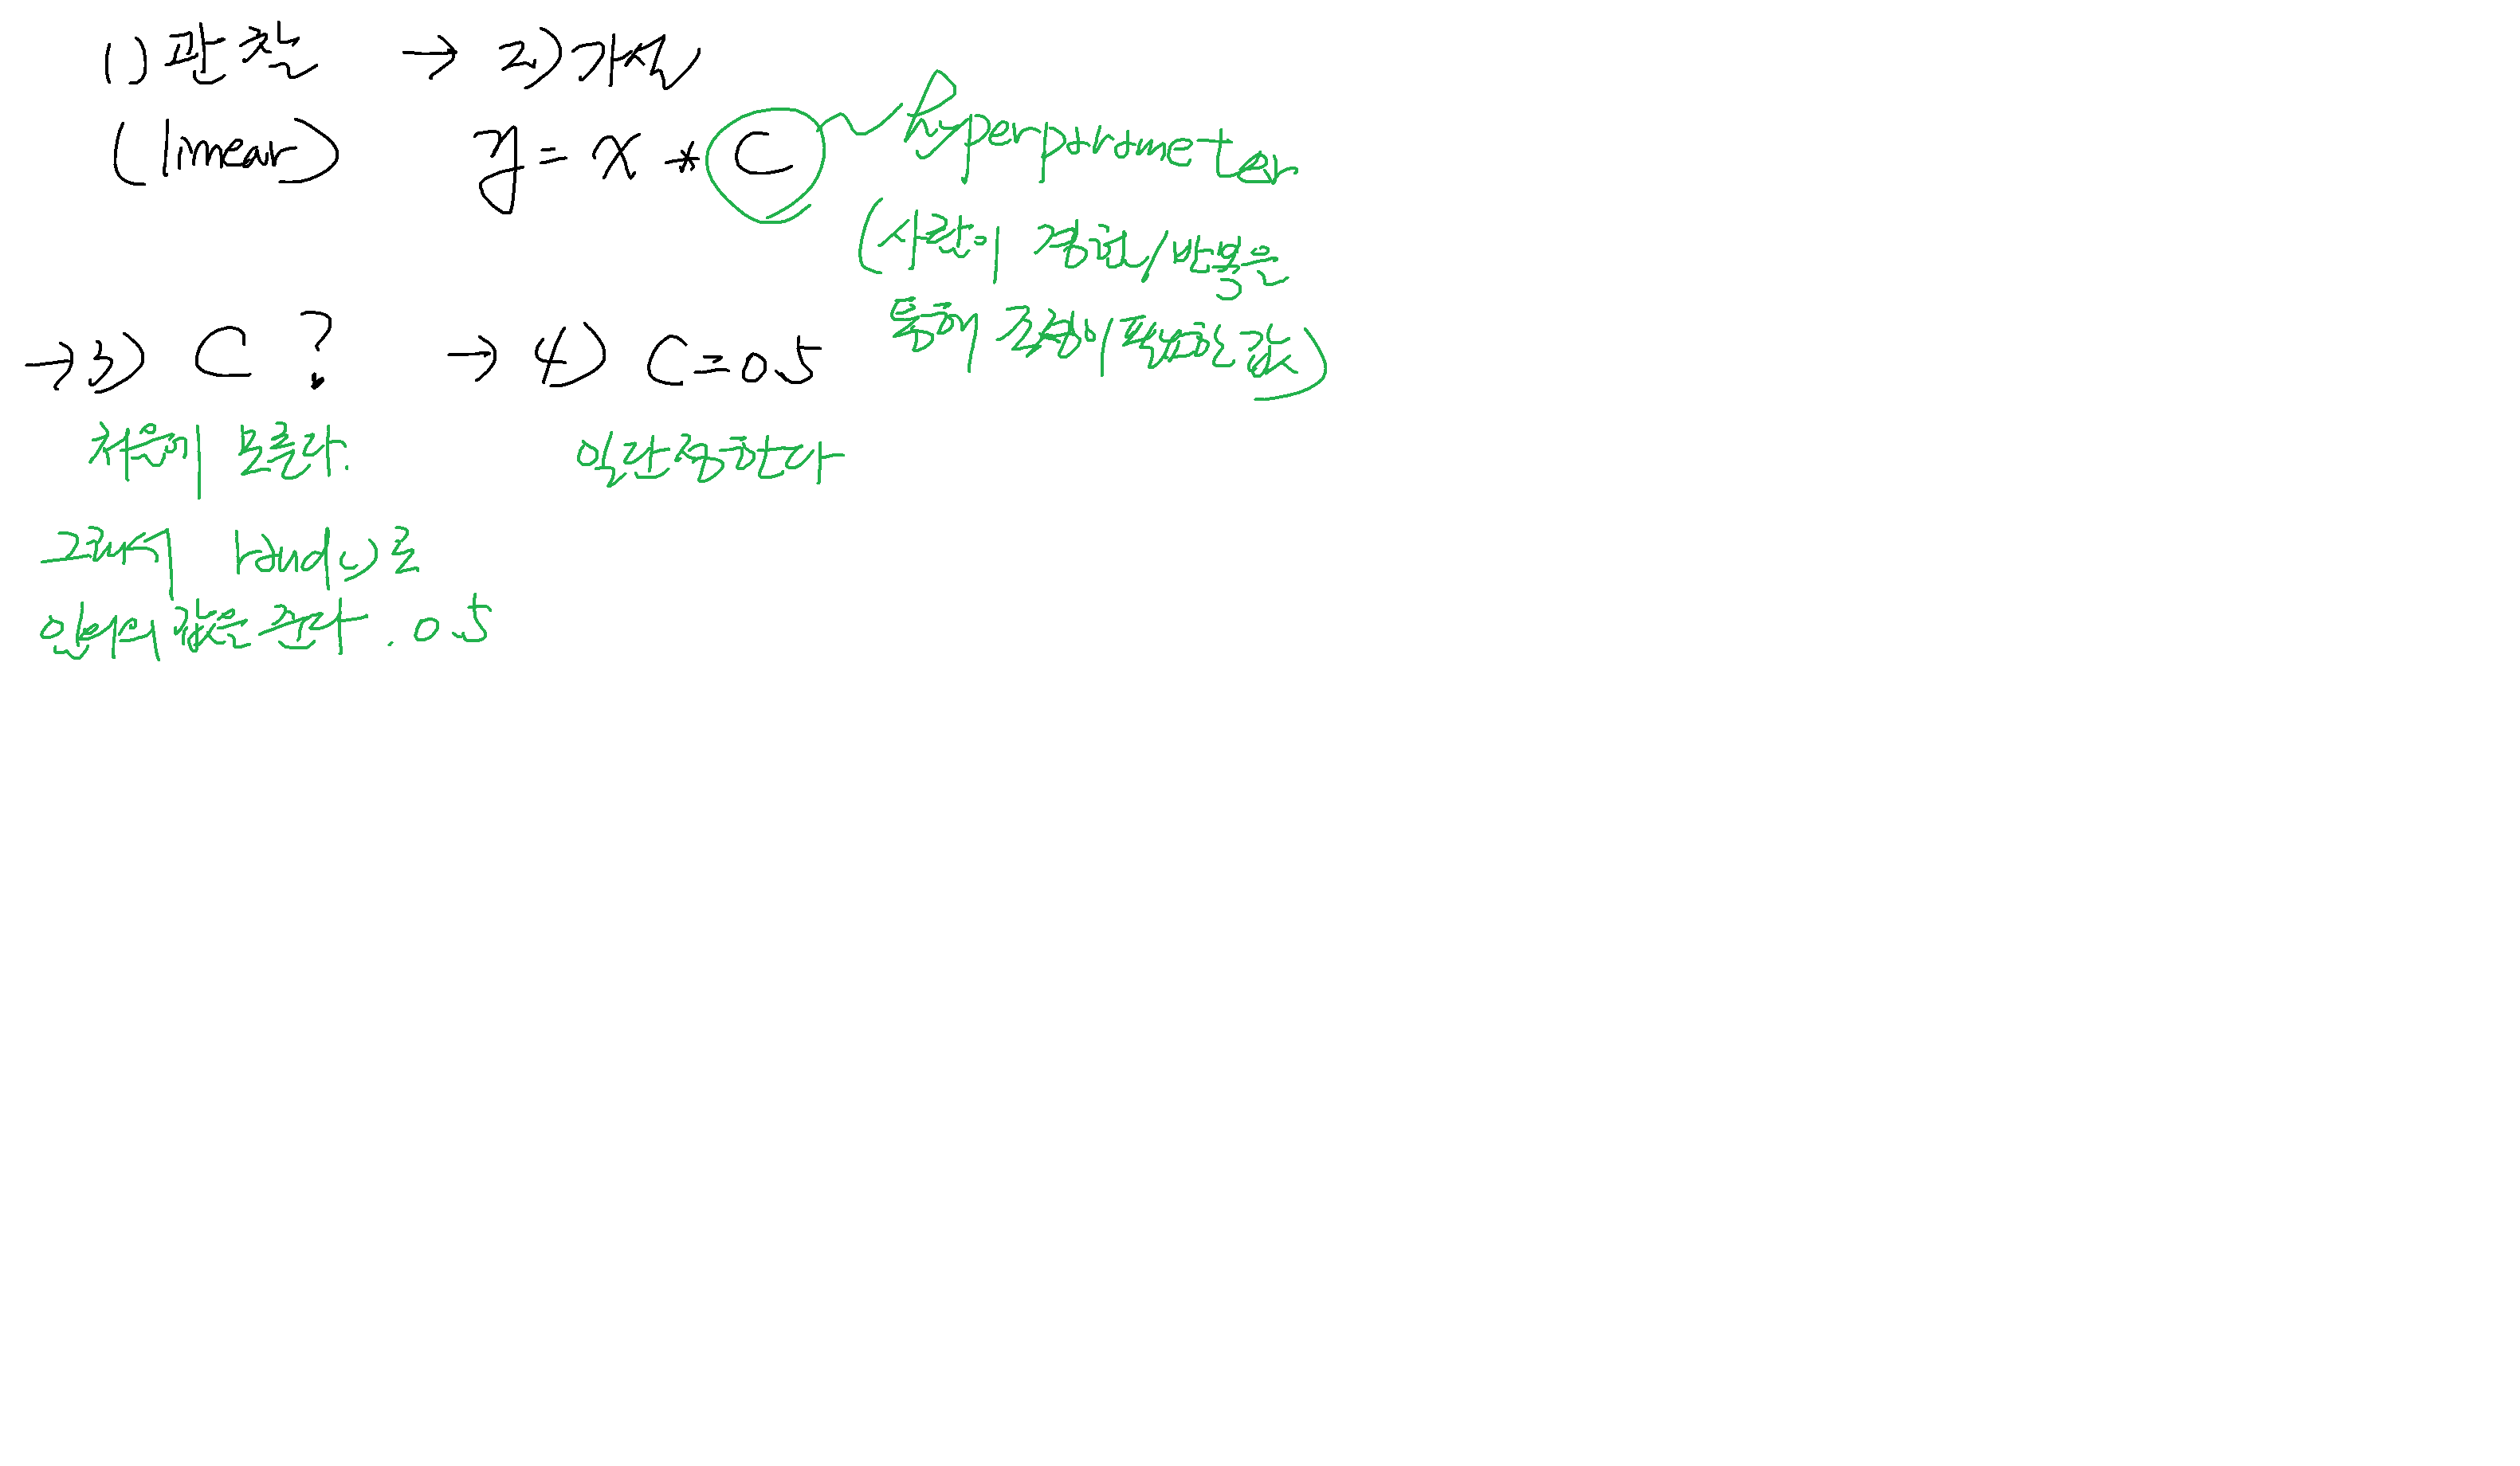 1) 관찰 → 2) 가설
(linear) y = x * C hyperparameter
(사람이 경험/반복을
통해 조정이 필요한 값)
→ 3) C ? → 4) C = 0.5
처음에 모른다. 일단 정한다
그래서 rand()로
임의 값을 준다. 0.5